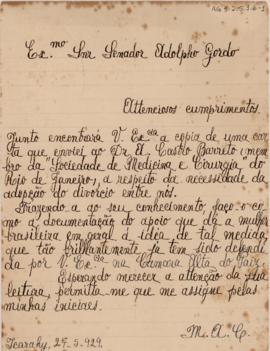 Ex.mo Snr Senador Adolpho Gordo
Attenciosos cumprimentos.
Junto encontrará V. Excia a copia de uma car
ta que enviei ao Dr A. Castro Barreto (mem
bro da "Sociedade de Medicina e Cirurgia" do
Rio de Janeiro), a respeito da necessidade da
adopção do divorcio entre nós.
Trazendo a ao seu conhecimento, faço-o co
mo documentação do apoio que dá a mulher
brasileira em geral á idéa de tal medida,
que tão brilhantemente já tem sido defendi
da por V. Excia na Camara Alta do Paiz.
Esperando merecer a attenção da sua
leitura, permita-me que me assigne pelas
minhas iniciaes.
M. A. C.
Icarahy, 25-5-929.